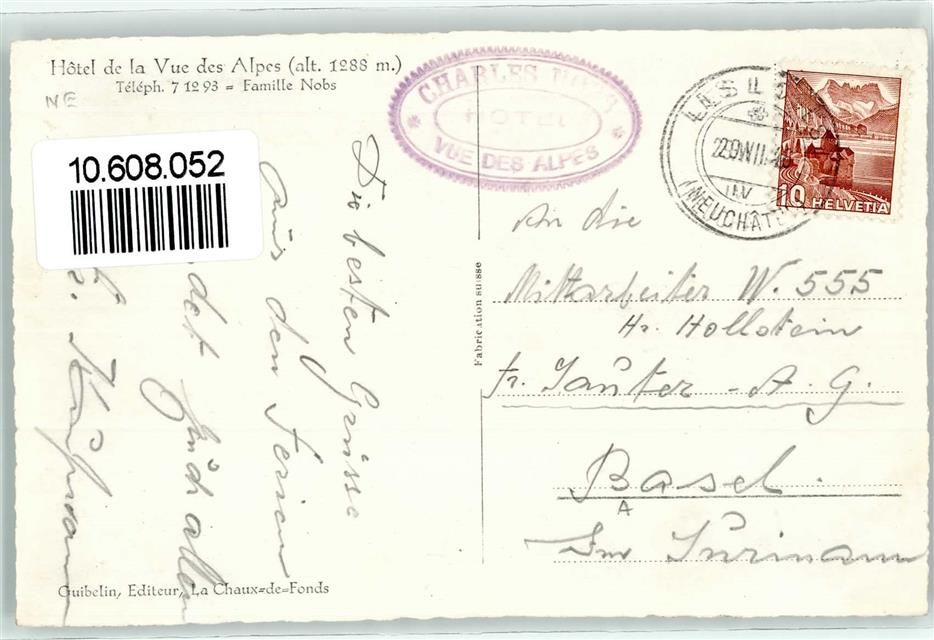 Hôtel de la Vue des Alpes (alt. 1288 m.)
Téléph. 7 12 93 = Famille Nobs
NE
10.608.052
CHARLES NOBS
HOTEL
VUE DES ALPES
NEUCHÂT
10 HELVETIA
Die besten Grüsse
aus den Ferien
Euch allen
Fabrication suisse
An die
Mitarbeiter W. 555
Hr. Hollstein
fr. Sauter - A. G.
Basel.
A
Im Surinam
Guibelin, Editeur, La Chaux=de=Fonds